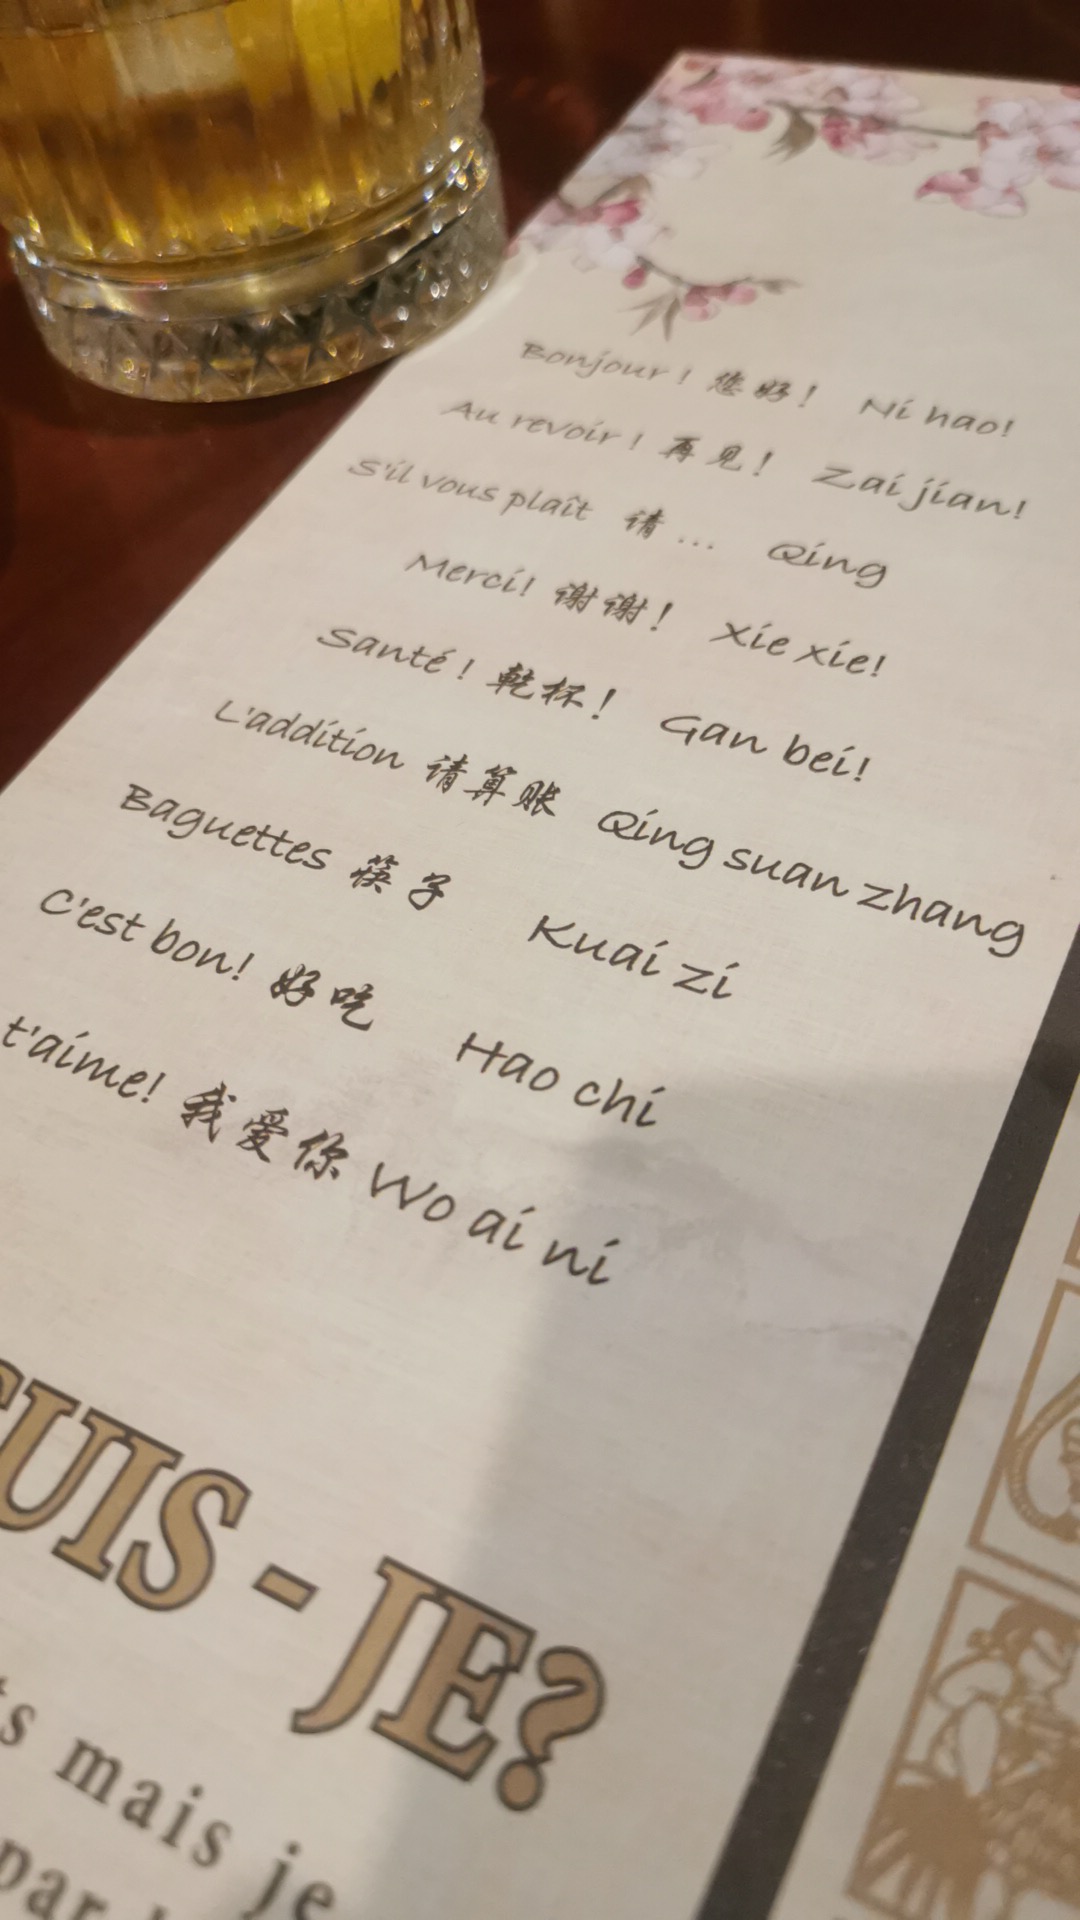 Bonjour ! 您好！ Ni hao!
Au revoir ! 再见！ Zai jian!
S'il vous plaît 请 ... Qing
Merci! 谢谢！ Xie xie!
Santé ! 乾杯！ Gan bei!
L'addition 请算账 Qing suan zhang
Baguettes 筷子 Kuai zi
C'est bon! 好吃 Hao chi
t'aime! 我爱你 Wo ai ni
SUIS - JE?
mais je
par